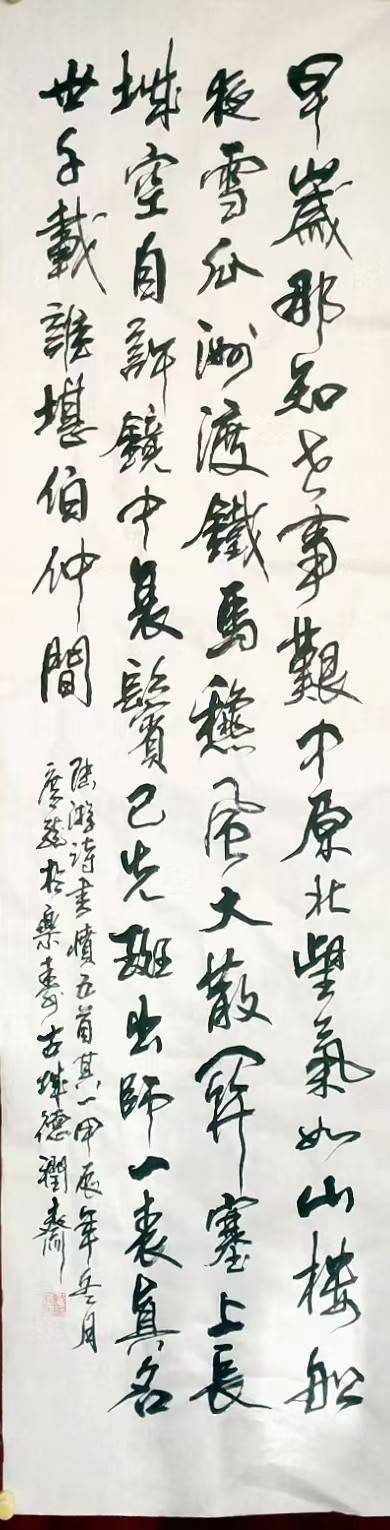 早歲那知世事艱中原北望氣如山樓船
夜雪瓜洲渡鐵馬秋風大散關塞上長
城空自許鏡中衰鬢已先斑出師一表真名
世千載誰堪伯仲間
陸游詩書憤五首其一甲辰年冬月
於樂壽古城德潤齋